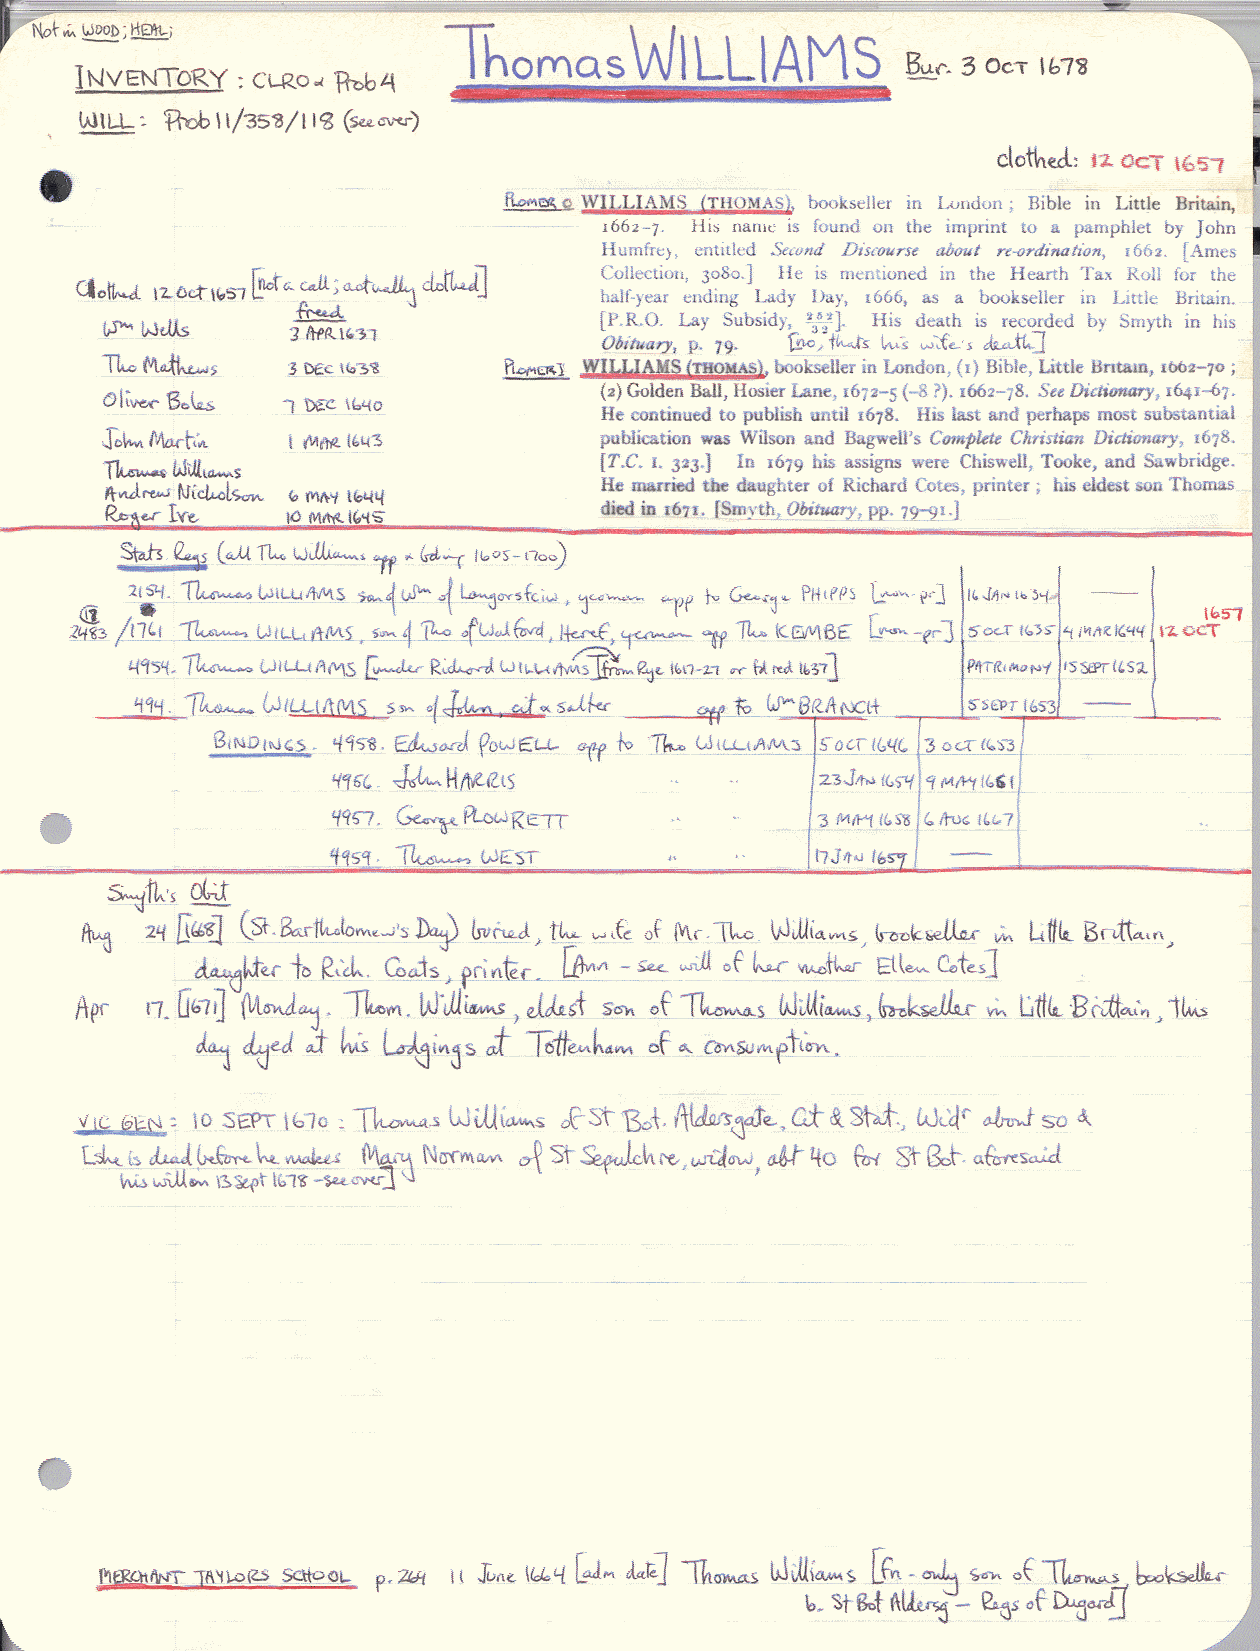 Not in WOOD; HEAL;
Thomas WILLIAMS
Bur. 3 OCT 1678
INVENTORY: CLRO & Prob 4
WILL: Prob 11/358/118 (see over)
clothed: 12 OCT 1657
PLOMER 0 WILLIAMS (THOMAS), bookseller in London; Bible in Little Britain,
1662–7. His name is found on the imprint to a pamphlet by John
Humfrey, entitled Second Discourse about re-ordination, 1662. [Ames
Collection, 3080.] He is mentioned in the Hearth Tax Roll for the
half-year ending Lady Day, 1666, as a bookseller in Little Britain.
[P.R.O. Lay Subsidy, 252/32]. His death is recorded by Smyth in his
Obituary, p. 79. [no, thats his wife's death]
PLOMER I WILLIAMS (THOMAS), bookseller in London, (1) Bible, Little Britain, 1662–70;
(2) Golden Ball, Hosier Lane, 1672–5 (–8 ?). 1662–78. See Dictionary, 1641–67.
He continued to publish until 1678. His last and perhaps most substantial
publication was Wilson and Bagwell's Complete Christian Dictionary, 1678.
[T.C. I. 323.] In 1679 his assigns were Chiswell, Tooke, and Sawbridge.
He married the daughter of Richard Cotes, printer; his eldest son Thomas
died in 1671. [Smyth, Obituary, pp. 79–91.]
Clothed 12 Oct 1657 [not a call; actually clothed]
freed
Wm Wells 3 APR 1637
Tho Mathews 3 DEC 1638
Oliver Boles 7 DEC 1640
John Martin 1 MAR 1643
Thomas Williams
Andrew Nicholson 6 MAY 1644
Roger Ive 10 MAR 1645
Stats Regs (all Tho Williams app & bding 1605–1700)
2154. Thomas WILLIAMS son of Wm of Langorsfciw, yeoman app to George PHIPPS [non-pr] 16 JAN 1634 —
18
1657
2483/1761 Thomas WILLIAMS, son of Tho of Walford, Heref, yeoman app Tho KEMBE [non-pr] 5 OCT 1635 4 MAR 1644 12 OCT
4954. Thomas WILLIAMS [under Richard WILLIAMS [from Rye 1617–27 or fd red 1637] PATRIMONY 15 SEPT 1652
494. Thomas WILLIAMS, son of John, cit & salter app to Wm BRANCH 5 SEPT 1653 —
BINDINGS. 4958. Edward POWELL app to Tho WILLIAMS 5 OCT 1646 3 OCT 1653
4956. John HARRIS " " 23 JAN 1654 9 MAY 1661
4957. George PLOWRETT " " 3 MAY 1658 6 AUG 1667
4959. Thomas WEST " " 17 JAN 1659 —
Smyth's Obit
Aug 24 [1668] (St. Bartholomew's Day) buried, the wife of Mr. Tho. Williams, bookseller in Little Brittain,
daughter to Rich. Coats, printer. [Ann – see will of her mother Ellen Cotes]
Apr 17. [1671] Monday. Thom. Williams, eldest son of Thomas Williams, bookseller in Little Brittain, this
day dyed at his Lodgings at Tottenham of a consumption.
VIC GEN: 10 SEPT 1670: Thomas Williams of St Bot. Aldersgate, Cit & Stat., Widr about 50 &
[she is dead before he makes Mary Norman of St Sepulchre, widow, abt 40 for St Bot. aforesaid
his will on 13 Sept 1678 – see over]
MERCHANT TAYLORS SCHOOL p. 264 11 June 1664 [adm date] Thomas Williams [fn – only son of Thomas, bookseller
b. St Bot Aldersg – Regs of Dugard]